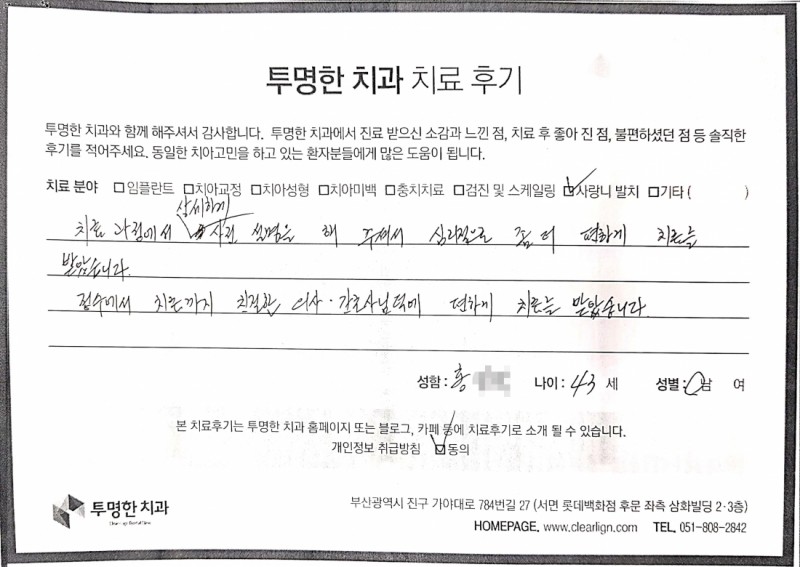 투명한 치과 치료 후기
투명한 치과와 함께 해주셔서 감사합니다. 투명한 치과에서 진료 받으신 소감과 느낀 점, 치료 후 좋아 진 점, 불편하셨던 점 등 솔직한
후기를 적어주세요. 동일한 치아고민을 하고 있는 환자분들에게 많은 도움이 됩니다.
치료 분야 □임플란트 □치아교정 □치아성형 □치아미백 □충치치료 □검진 및 스케일링 ☑사랑니 발치 □기타 ( )
상세하게
치료 과정에서 사전 설명을 해 주셔서 심리적으로 좀 더 편하게 치료를
받았습니다.
접수에서 치료까지 친절한 의사·간호사님덕에 편하게 치료를 받았습니다.
성함 : 홍 나이 : 43 세 성별 : 남 여
본 치료후기는 투명한 치과 홈페이지 또는 블로그, 카페 등에 치료후기로 소개 될 수 있습니다.
개인정보 취급방침 ☑동의
투명한 치과
부산광역시 진구 가야대로 784번길 27 (서면 롯데백화점 후문 좌측 삼화빌딩 2·3층)
HOMEPAGE. www.clearlign.com TEL. 051-808-2842